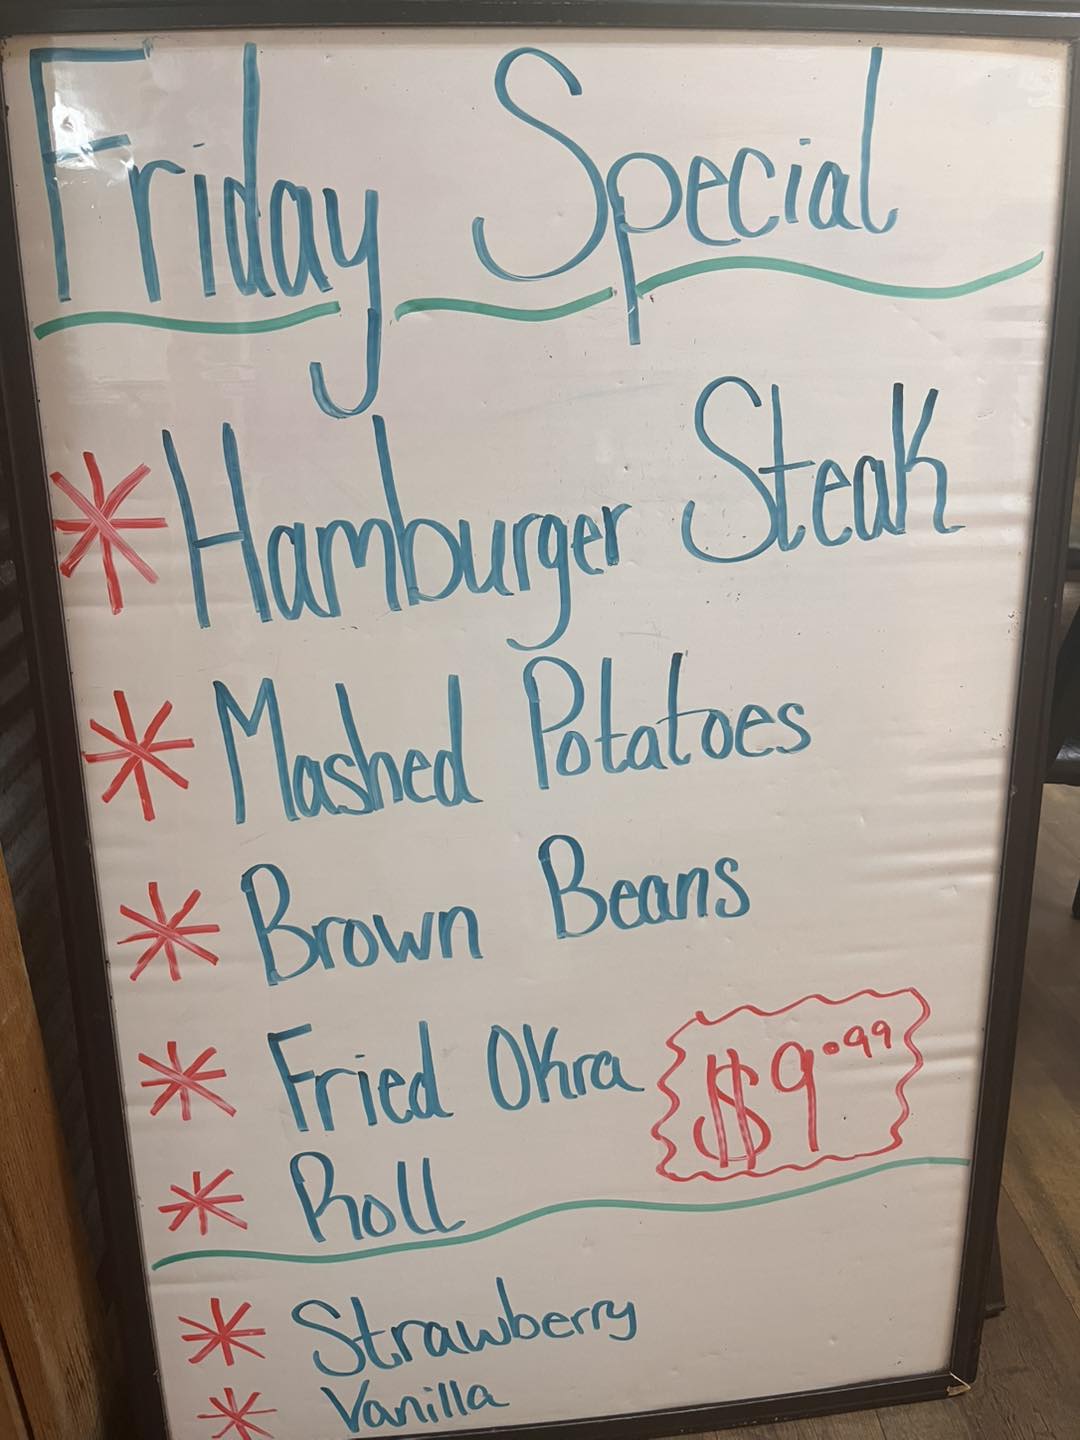 Friday Special
* Hamburger Steak
* Mashed Potatoes
* Brown Beans
* Fried Okra
$9.99
* Roll
* Strawberry
* Vanilla